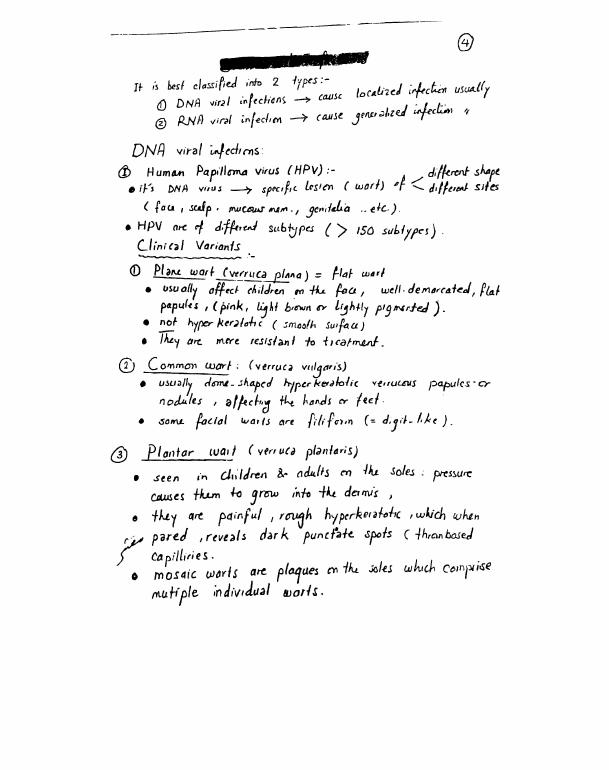 4
It is best classified into 2 types:-
① DNA viral infections → cause localized infection usually
② RNA viral infection → cause generalized infection "
DNA viral infections:
① Human Papilloma virus (HPV):-
• it's DNA virus → specific lesion (wart) of < different shape
different sites
(face, scalp. mucous mem., genitalia ..etc.).
• HPV are of different subtypes (> 150 subtypes).
Clinical Variants :-
① Plane wart (verruca plana) = flat wart
• usually affect children on the face, well-demarcated, flat
papules, (pink, light brown or lightly pigmented).
• not hyperkeratotic (smooth surface)
• They are more resistant to treatment.
② Common wart: (verruca vulgaris)
• usually dome-shaped hyperkeratotic verrucous papules or
nodules, affecting the hands or feet.
• some facial warts are filiform (= digit-like).
③ Plantar wart (verruca plantaris)
• seen in children & adults on the soles: pressure
causes them to grow into the dermis,
• they are painful, rough hyperkeratotic, which when
pared, reveals dark punctate spots (thrombosed
capilliries.
• mosaic warts are plaques on the soles which comprise
mutiple individual warts.